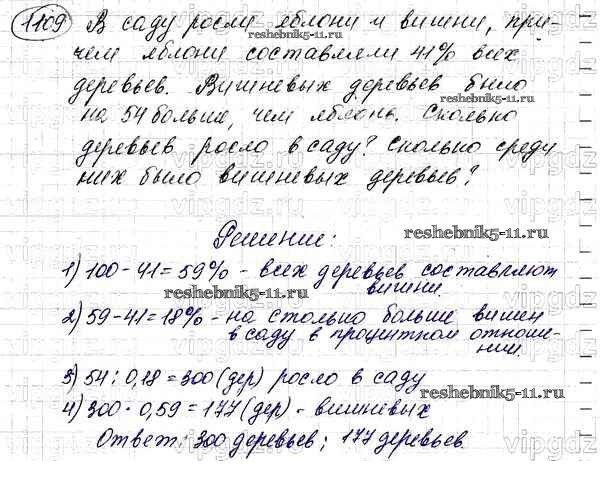 1109 В саду росли яблони и вишни, при-
чем яблони составляли 41% всех
деревьев. Вишневых деревьев было
reshebnik5-11.ru
на 54 больше, чем яблонь. Сколько
деревьев росло в саду? Сколько среди
них было вишневых деревьев?
reshebnik5-11.ru
Решение:
1) 100 - 41 = 59% - всех деревьев составляют
вишни.
reshebnik5-11.ru
2) 59 - 41 = 18% - на столько больше вишен
в саду в процентном отноше-
нии.
3) 54 : 0,18 = 300 (дер) росло в саду
reshebnik5-11.ru
4) 300 · 0,59 = 177 (дер) - вишневых
Ответ: 300 деревьев; 177 деревьев.
vipgdz